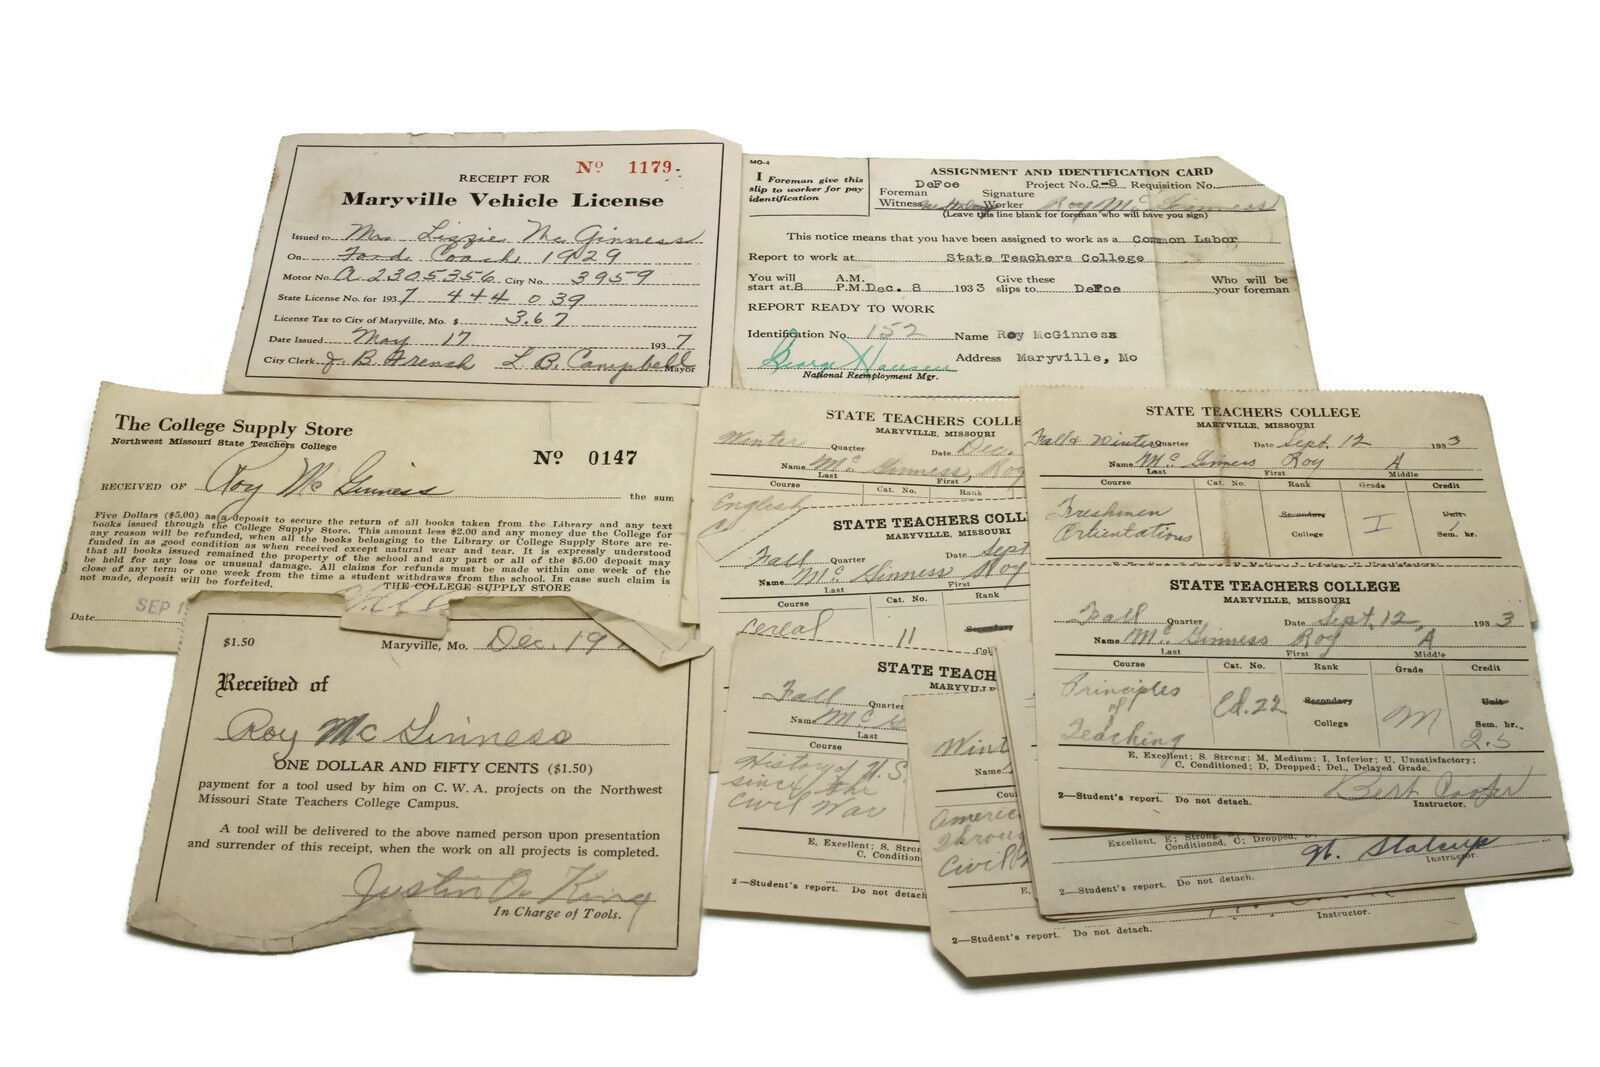 Nº 1179
RECEIPT FOR
Maryville Vehicle License
Issued to Mrs Lizzie McGinness
On Ford Coach 1929
Motor No. A 2305356 City No. 3959
State License No. for 1937 444 039
License Tax to City of Maryville, Mo. $ 3.67
Date Issued May 17 1937
City Clerk J. B. French L. B. Campbell Mayor
MO-4
I Foreman give this
slip to worker for pay
identification
ASSIGNMENT AND IDENTIFICATION CARD
DeFoe Project No. C-8 Requisition No.
Foreman Signature
Witness Worker Roy McGinness
(Leave this line blank for foreman who will have you sign)
This notice means that you have been assigned to work as a Common Labor
Report to work at State Teachers College
You will A.M. Give these Who will be
start at 8 P.M. Dec. 8 1933 slips to DeFoe your foreman
REPORT READY TO WORK
Identification No. 152 Name Roy McGinness
Address Maryville, Mo
George
National Reemployment Mgr.
The College Supply Store
Northwest Missouri State Teachers College
Nº 0147
RECEIVED OF Roy McGinness the sum
Five Dollars ($5.00) as a deposit to secure the return of all books taken from the Library and any text
books issued through the College Supply Store. This amount less $2.00 and any money due the College for
any reason will be refunded, when all the books belonging to the Library or College Supply Store are re-
funded in as good condition as when received except natural wear and tear. It is expressly understood
that all books issued remained the property of the school and any part or all of the $5.00 deposit may
be held for any loss or unusual damage. All claims for refunds must be made within one week of the
close of any term or one week from the time a student withdraws from the school. In case such claim is
not made, deposit will be forfeited. THE COLLEGE SUPPLY STORE
Date SEP 1
$1.50 Maryville, Mo. Dec. 19
Received of
Roy McGinness
ONE DOLLAR AND FIFTY CENTS ($1.50)
payment for a tool used by him on C. W. A. projects on the Northwest
Missouri State Teachers College Campus.
A tool will be delivered to the above named person upon presentation
and surrender of this receipt, when the work on all projects is completed.
Justin King
In Charge of Tools.
STATE TEACHERS COLLE
MARYVILLE, MISSOURI
Winter Quarter Date Dec.
Name McGinness, Roy
Last First
Course Cat. No. Rank
English
STATE TEACHERS COLL
MARYVILLE, MISSOURI
Fall Quarter Date Sept
Name McGinness Roy
Last First
Course Cat. No. Rank
Cereal 11 Secondary
Col
STATE TEACH
MARYVILL
Fall Quarter
Name McG
Last
Course
History of U.S.
since the
Civil War
E, Excellent; S, Stron
C, Conditioned;
2—Student's report. Do not detach.
Wint
Name
Americ
throug
Civil
E,
2—Student's report. Do not detach. Instructor.
STATE TEACHERS COLLEGE
MARYVILLE, MISSOURI
Fall & Winter Quarter Date Sept. 12 1933
Name McGinness Roy A
Last First Middle
Course Cat. No. Rank Grade Credit
Freshmen Secondary Unit
Orientations College I 1 Sem. hr.
STATE TEACHERS COLLEGE
MARYVILLE, MISSOURI
Fall Quarter Date Sept. 12, 1933
Name McGinness Roy A
Last First Middle
Course Cat. No. Rank Grade Credit
Principles Secondary Unit
of Ed. 22 College M Sem. hr.
Teaching 2.5
E, Excellent; S, Strong; M, Medium; I, Inferior; U, Unsatisfactory;
C, Conditioned; D, Dropped; Del., Delayed Grade.
Bert Cooper
2—Student's report. Do not detach. Instructor.
Excellent; S, Strong;
Conditioned, C; Dropped,
Stalcup
2—Student's report. Do not detach. Instructor.